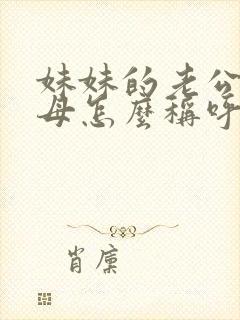 妹妹的老公
母怎麼稱呼
肖廩